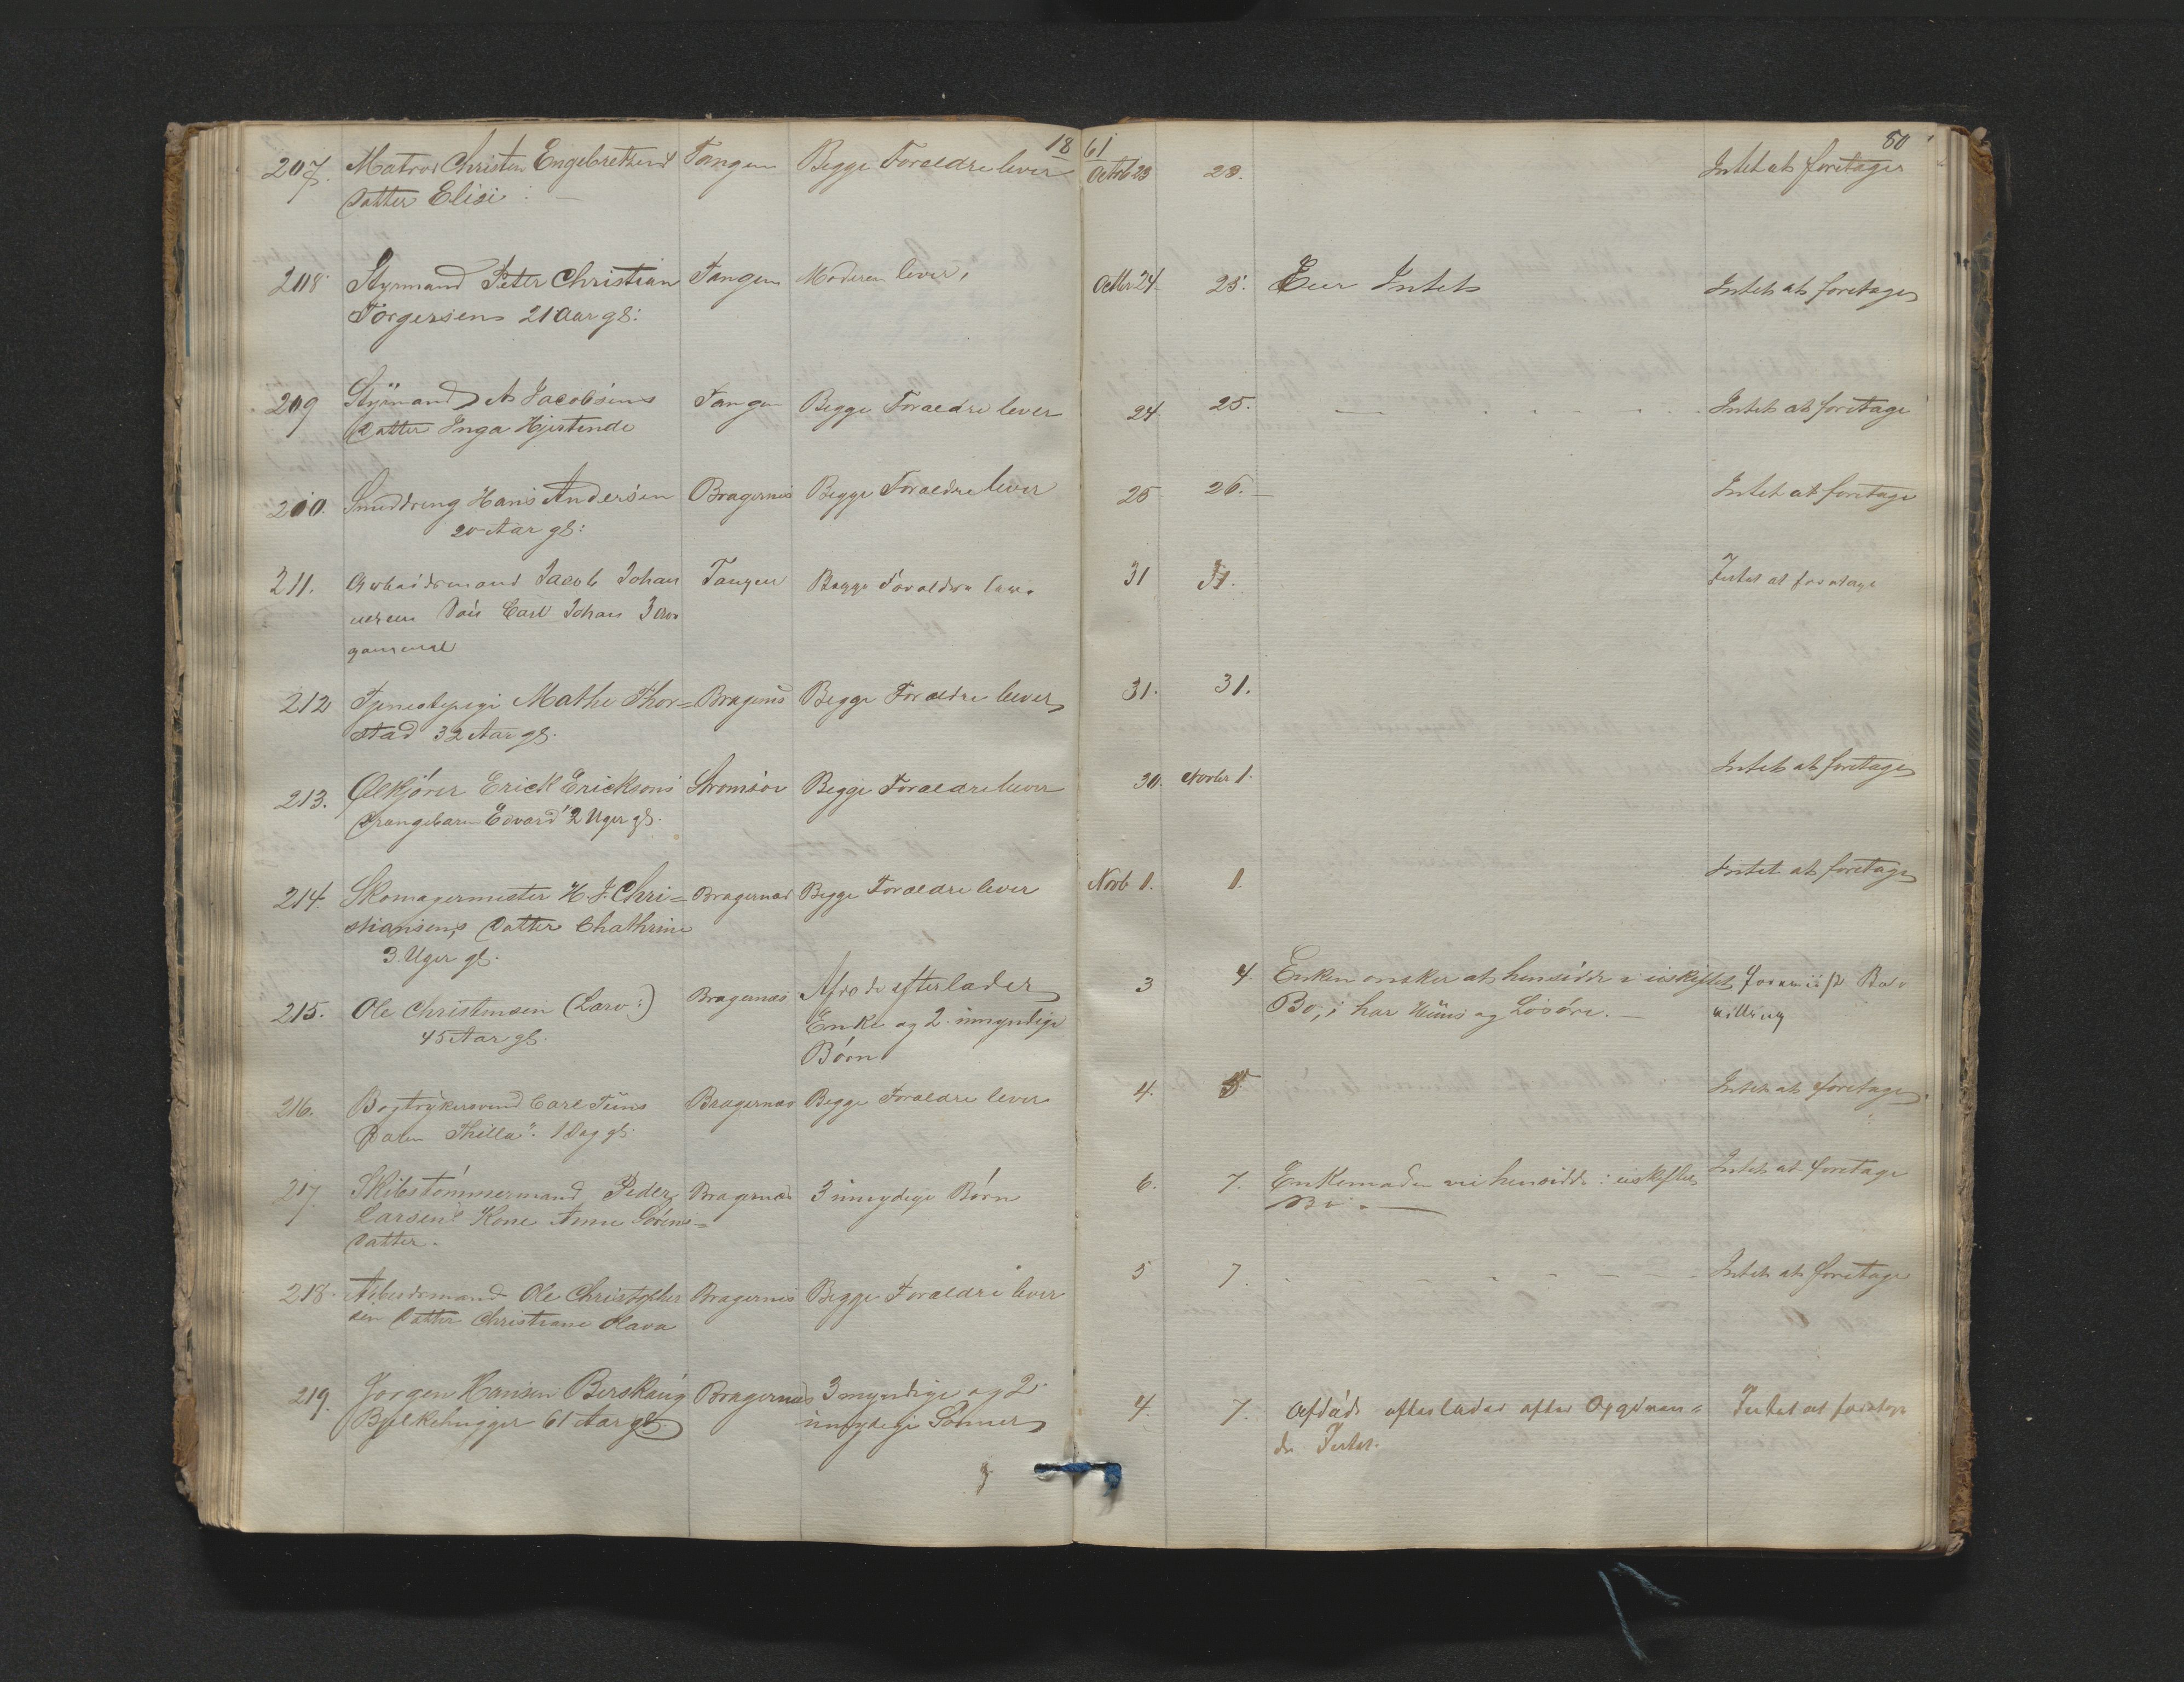 18 61
80
207. Matros Christen Engebretsens Tangen Begge Forældre lever Octob 23 23. Intet at foretages
Datter Elisi
208. Styrmand Peter Christian Tangen Moderen lever, Octbr 24 25. Eier Intet Intet at foretages
Törgersens 21 Aar gl:
209 Styrmand A Jacobsens Tangen Begge Forældre lever 24 25. Intet at foretage
Datter Inga
210. Smeddreng Hans Andersen Bragernes Begge Forældre lever 25 26. Intet at foretage
20 Aar gl:
211. Arbeidsmand Jacob Johan Tangen Begge Forældre lever 31 31. Intet at foretage
nesen Søn Carl Johan 3 Aar
gammel
212 Tjenestepige Mathe Thor= Bragernes Begge Forældre lever 31. 31.
stad 32 Aar gl.
213. Ölkjörer Erick Ericksens Strömsöe Begge Forældre lever 30. Novbr 1. Intet at foretages
Drangebarn Edvard 2 Uger gl.
214. Skomagermester H. J. Chri= Bragernæs Begge Forældre lever Novb 1. 1. Intet at foretages
stiansens Datter Chathrine
3. Uger gl.
215. Ole Christensen (Larv:) Bragernæs Afdöde efterlader 3 4. Enken onsker at hensidde i uskiftet
45 Aar gl. Enke og 2. umyndige Bo; i har Huus og Lösöre.
Börn
216. Bogtrykersvend Carl Begge Forældre lever 4. 5 Intet at foretages.
Bragernæs 1 Dag gl.
217. Skibstömmermand Peder Bragernæs 3 umydige Börn 6. 7. Enkemanden vil hensidde i uskiftet Intet at foretage
Larsens Kone Anne Sörens= Bo.
Datter.
218. Arbeidsmand Ole Christopher Bragernes Begge Forældre lever 5 7. Intet at foretage
sen Datter Christiane Olava
219. Jörgen Hansen Berskaug Bragernæs 3 myndige og 2 4. 7. Afdøde efterlader efter Opgivan= Intet at foretage
Bjelkehugger 61 Aar gl. umydige Sönner de Intet.